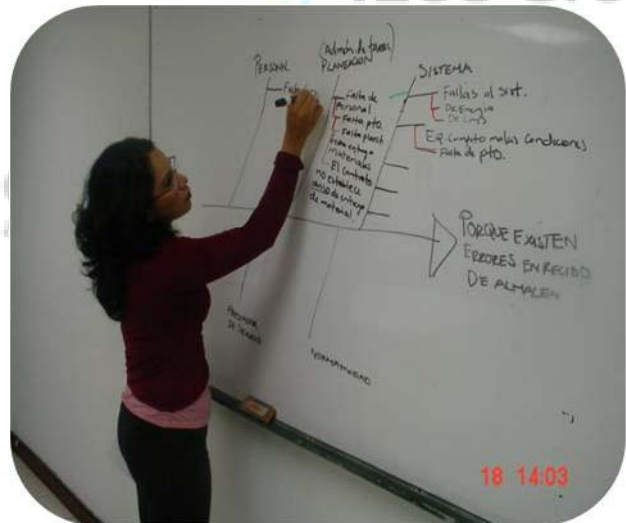 PERSONAL
Falta
(Admón de tareas)
PLANEACION
Falta de
Personal
Falta pto.
Falta
materiales
El Contrato
no establece
de entrega
de material.
SISTEMA
Fallas al sist.
De Energia
Eq. Computo malas condiciones
Falta de pto.
PORQUE EXISTEN
ERRORES EN RECIBO
DE ALMACEN
NORMATIVIDAD
18 14:03